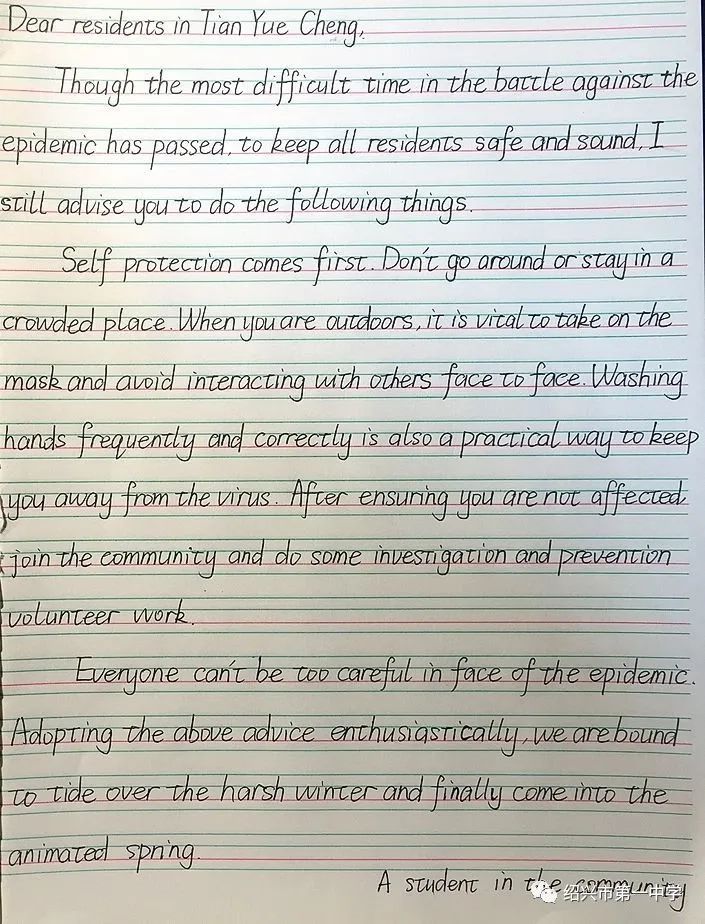 Dear residents in Tian Yue Cheng,
Though the most difficult time in the battle against the
epidemic has passed, to keep all residents safe and sound, I
still advise you to do the following things.
Self protection comes first. Don't go around or stay in a
crowded place. When you are outdoors, it is vital to take on the
mask and avoid interacting with others face to face. Washing
hands frequently and correctly is also a practical way to keep
you away from the virus. After ensuring you are not affected,
join the community and do some investigation and prevention
volunteer work.
Everyone can't be too careful in face of the epidemic.
Adopting the above advice enthusiastically, we are bound
to tide over the harsh winter and finally come into the
animated spring.
A student in the community
绍兴市第一中学